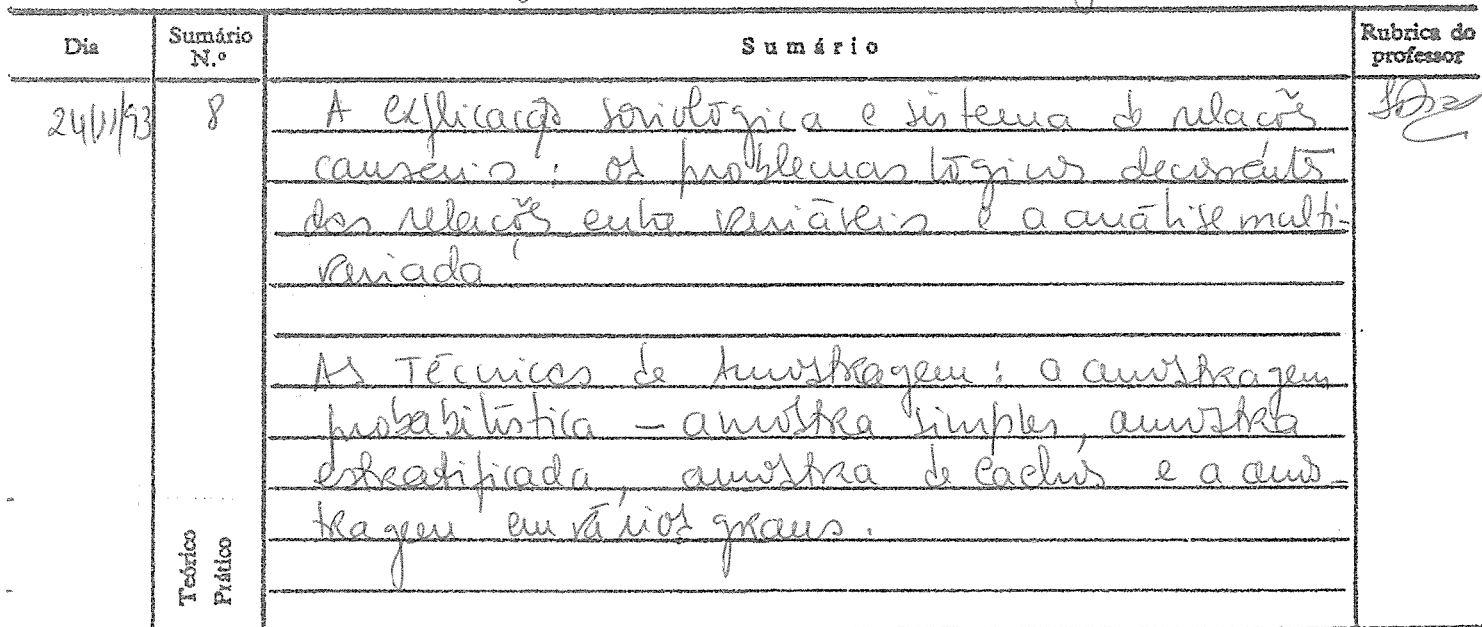 Dia Sumário N.º Sumário Rubrica do professor
24/11/93 8 A explicação sociológica e sistema de relações
causais: os problemas lógicos decorrentes
das relações entre variáveis e a análise multi-
variada
As Técnicas de Amostragem: a amostragem
probabilística – amostra simples, amostra
estratificada, amostra de cachos e a amos-
tragem em vários graus.
Teórico
Prático